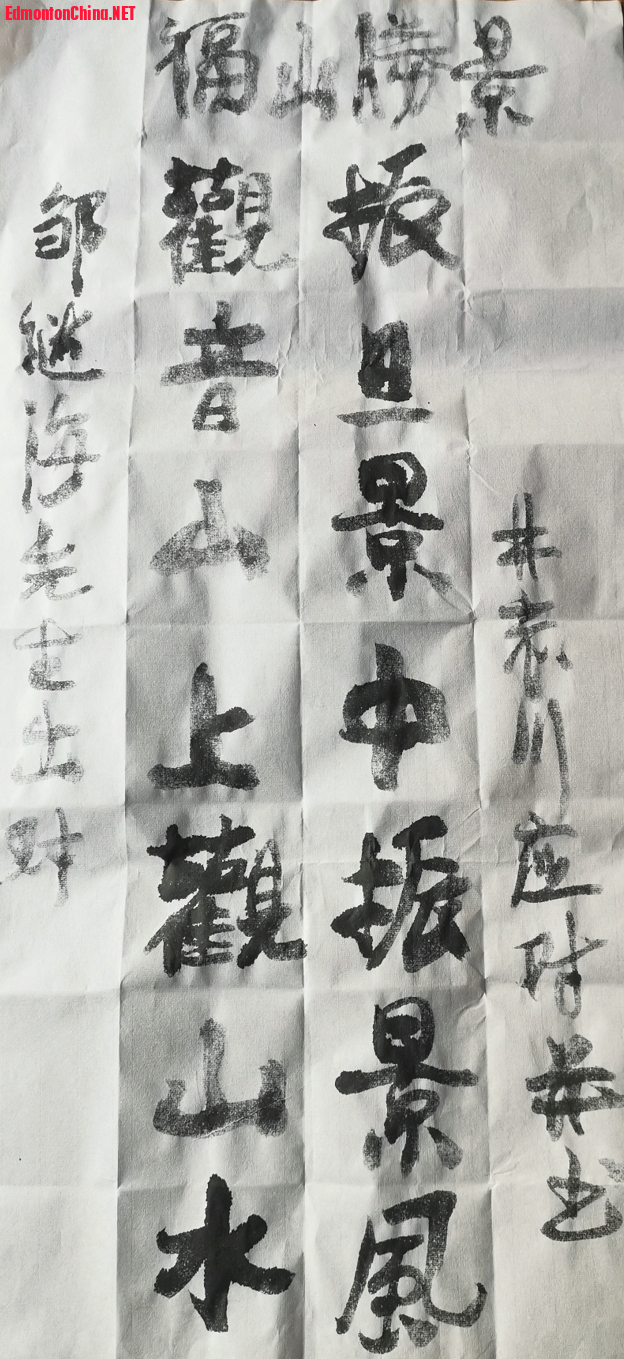 EdmontonChina.NET
福山勝景
邹继海先生出对
觀音山上觀山水
振旦景中振景風
井袁川应对并书